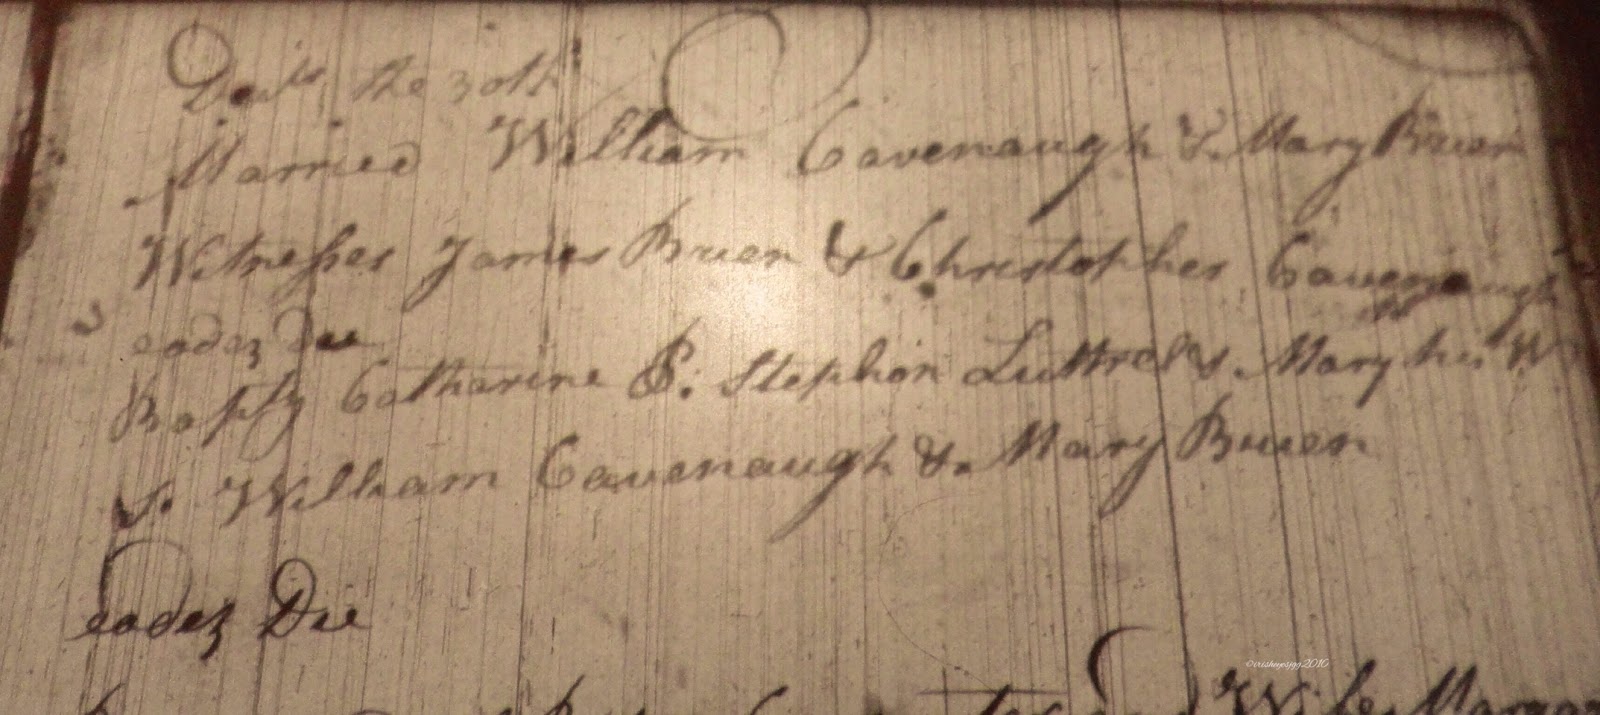 the 30th
Married William Cavenaugh & Mary Bruen
Witnesses James Bruen & Christopher Cavenaugh
eodem Die
Bapt Catharine P. Stephen Luttrel & Mary his W
S. William Cavenaugh & Mary Bruen
eodem Die
Wife Margar
©irisheyesjgg2016